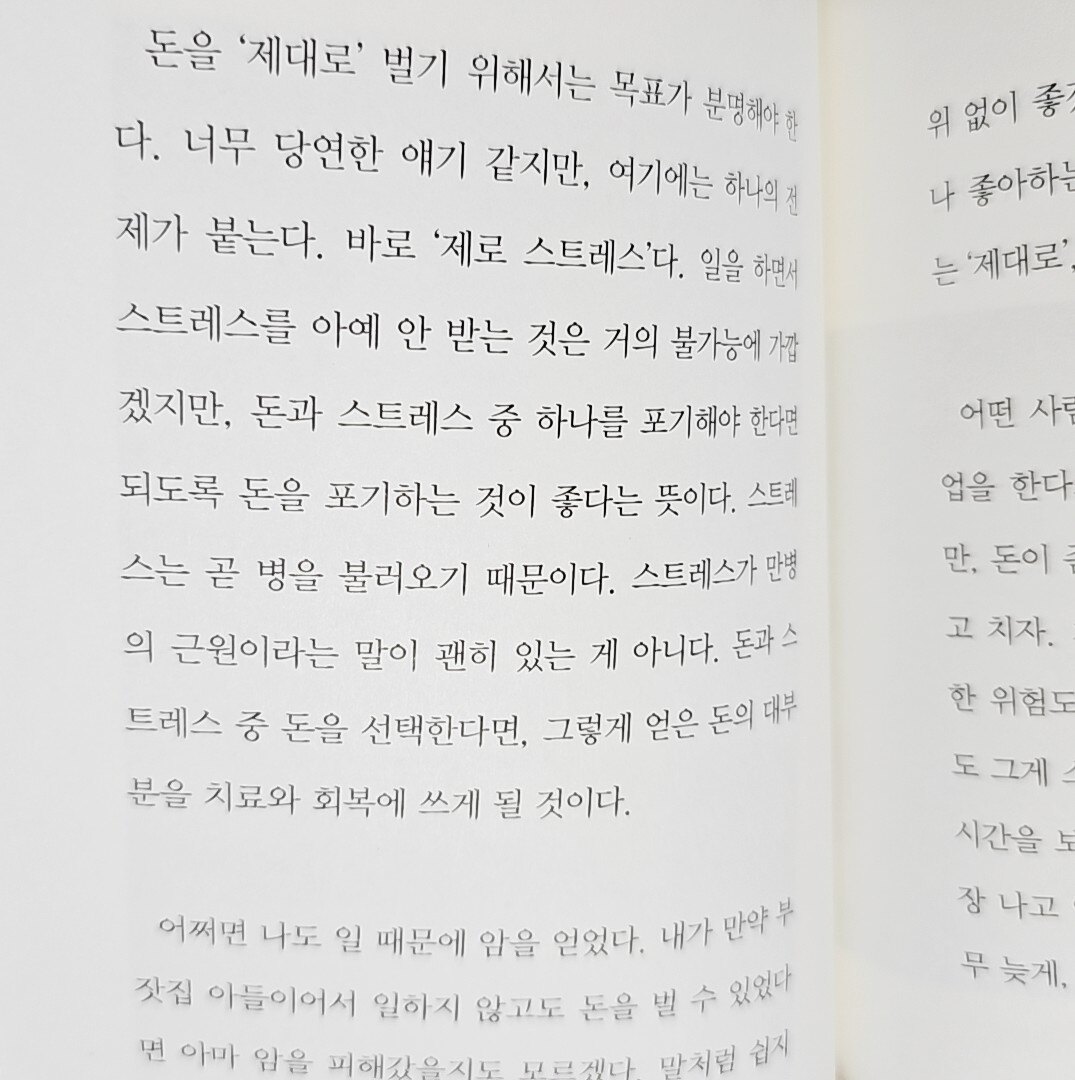 돈을 ‘제대로’ 벌기 위해서는 목표가 분명해야 한
다. 너무 당연한 얘기 같지만, 여기에는 하나의 전
제가 붙는다. 바로 ‘제로 스트레스’다. 일을 하면서
스트레스를 아예 안 받는 것은 거의 불가능에 가깝
겠지만, 돈과 스트레스 중 하나를 포기해야 한다면
되도록 돈을 포기하는 것이 좋다는 뜻이다. 스트레
스는 곧 병을 불러오기 때문이다. 스트레스가 만병
의 근원이라는 말이 괜히 있는 게 아니다. 돈과 스
트레스 중 돈을 선택한다면, 그렇게 얻은 돈의 대부
분을 치료와 회복에 쓰게 될 것이다.
어쩌면 나도 일 때문에 암을 얻었다. 내가 만약 부
잣집 아들이어서 일하지 않고도 돈을 벌 수 있었다
면 아마 암을 피해갔을지도 모르겠다. 말처럼 쉽지
위 없이
나 좋아하는
는 ‘제대로’,
어떤 사람
업을 한다
만, 돈이
고 치자.
한 위험도
도 그게
시간을
장 나고
무 늦게,